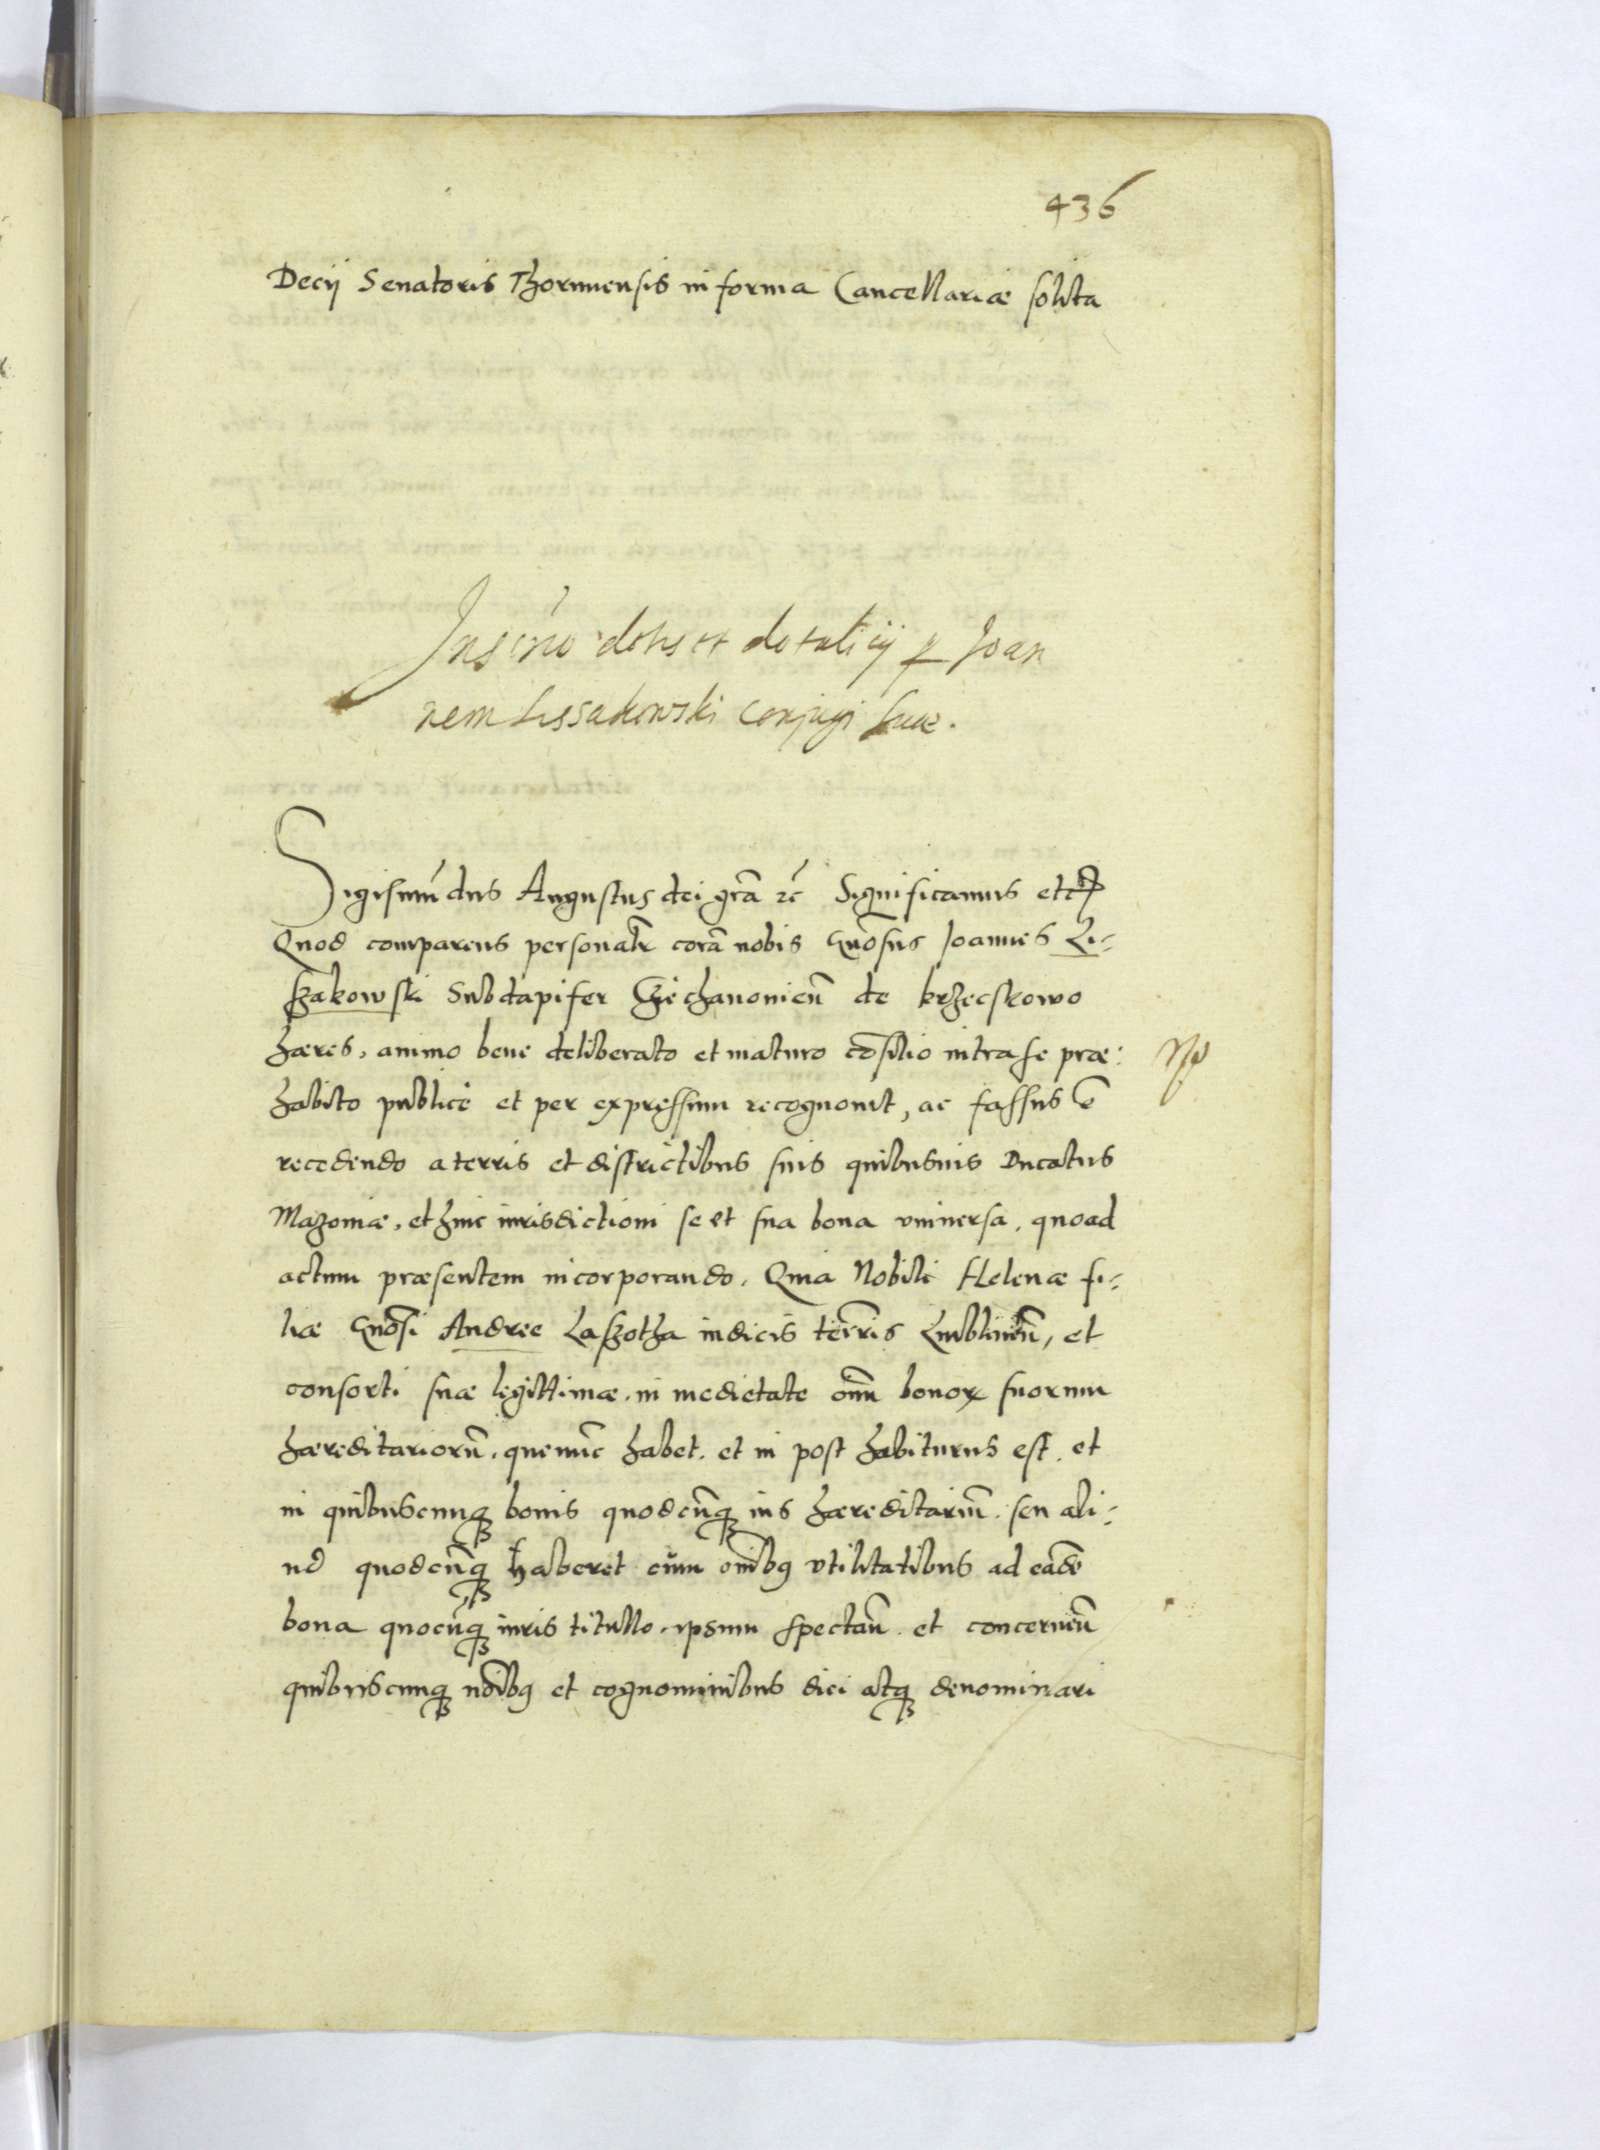 436
Decij Senatoris Thorunensis in forma Cancellariæ solita
Inscrio dotis et dotalicij p Joan
nem Lissakowski conjugi suae.
Sigismūdus Augustus dei grā rc̄ Significamus etc
Quod comparens personalr̄ corā nobis Gn̄osus Joannes Li-
szakowski Subdapifer Cziechanovień de krzeckowo
hæres, animo bene deliberato et maturo cōsilio intra se præ:
habito publicè et per expressum recognovit, ac fassus ē
recedendo a terris et districtibus suis quibusuis Ducatus
Mazoviæ, et huic iurisdictioni se et sua bona vniuersa, quoad
actum præsentem incorporando. Quia Nobili Helenæ fi-
liæ Gn̄osi Andree Laszotha iudicis terris Lublineń, et
consorti suæ legittimæ, in medietate om̄m bonoꝝ suorum
hæreditariorū, que nunc habet, et in post habiturus est, et
in quibuscunqꝫ bonis quodcūqꝫ ius hæreditariū, seu ali-
ud quodcūqꝫ haberet cum om̄ibꝰ vtilitatibus ad eadē
bona quocūqꝫ iuris titullo, ipsum spectań et concerneń
quibuscunqꝫ nōibꝰ et cognominibus dici atqꝫ denominari